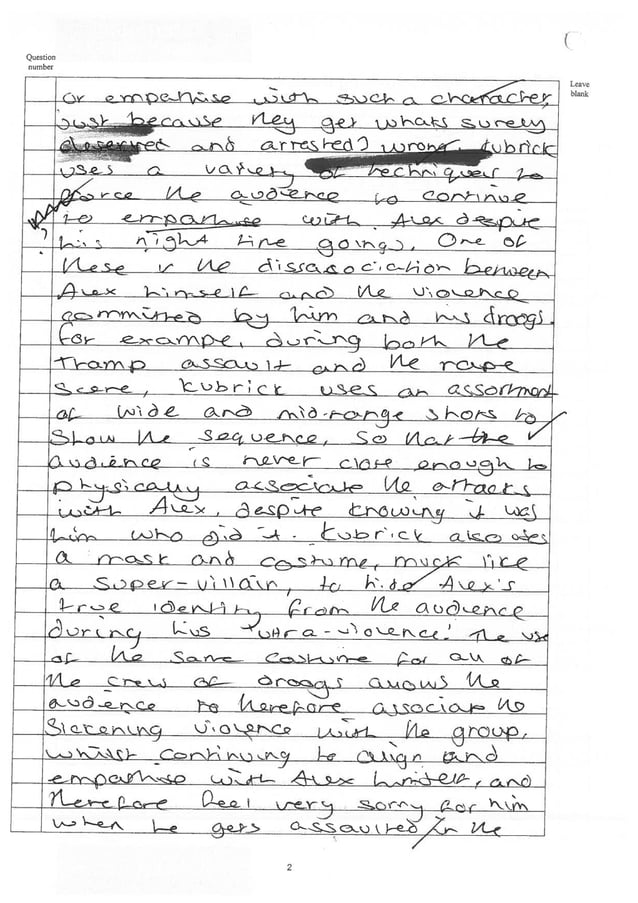 Question
number
Leave
blank
or empathise with such a character,
just because they get whats surely
deserved and arrested? wrong. Kubrick
uses a variety of techniques to
force the audience to continue
to empathise with Alex despite
his night time goings. One of
these is the dissasociation between
Alex himself and the violence
committed by him and his droogs.
For example, during both the
Tramp assault and the rape
scene, Kubrick uses an assortment
of wide and mid-range shots to
show the sequence, so that the
audience is never close enough to
physically associate the attacks
with Alex, despite knowing it was
him who did it. Kubrick also uses
a mask and costume, much like
a super-villain, to hide Alex's
true identity from the audience
during his 'ultra-violence'. The use
of the same costume for all of
the crew of droogs allows the
audience to therefore associate the
sickening violence with the group,
whilst continuing to align and
empathise with Alex himself, and
therefore feel very sorry for him
when he gets assaulted in the
2